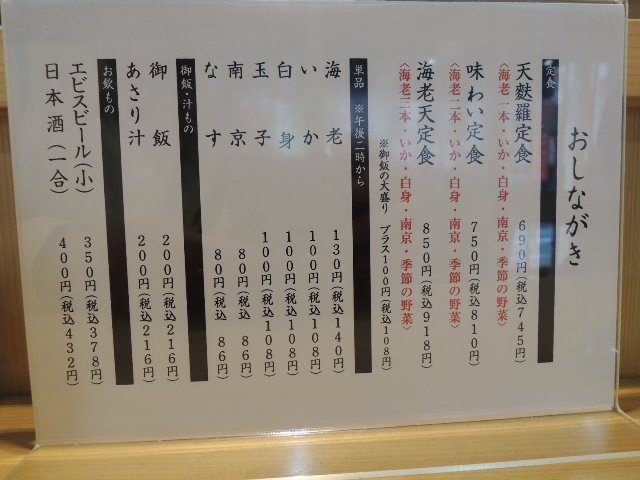 おしながき
定食
天麩羅定食 690円(税込745円)
〈海老一本・いか・白身・南京・季節の野菜〉
味わい定食 750円(税込810円)
〈海老二本・いか・白身・南京・季節の野菜〉
海老天定食 850円(税込918円)
〈海老三本・いか・白身・南京・季節の野菜〉
※御飯の大盛り プラス100円(税込108円)
単品 ※午後二時から
海老 130円(税込140円)
いか 100円(税込108円)
白身 100円(税込108円)
玉子 100円(税込108円)
南京 80円(税込 86円)
なす 80円(税込 86円)
御飯・汁もの
御飯 200円(税込216円)
あさり汁 200円(税込216円)
お飲もの
エビスビール(小) 350円(税込378円)
日本酒(一合) 400円(税込432円)